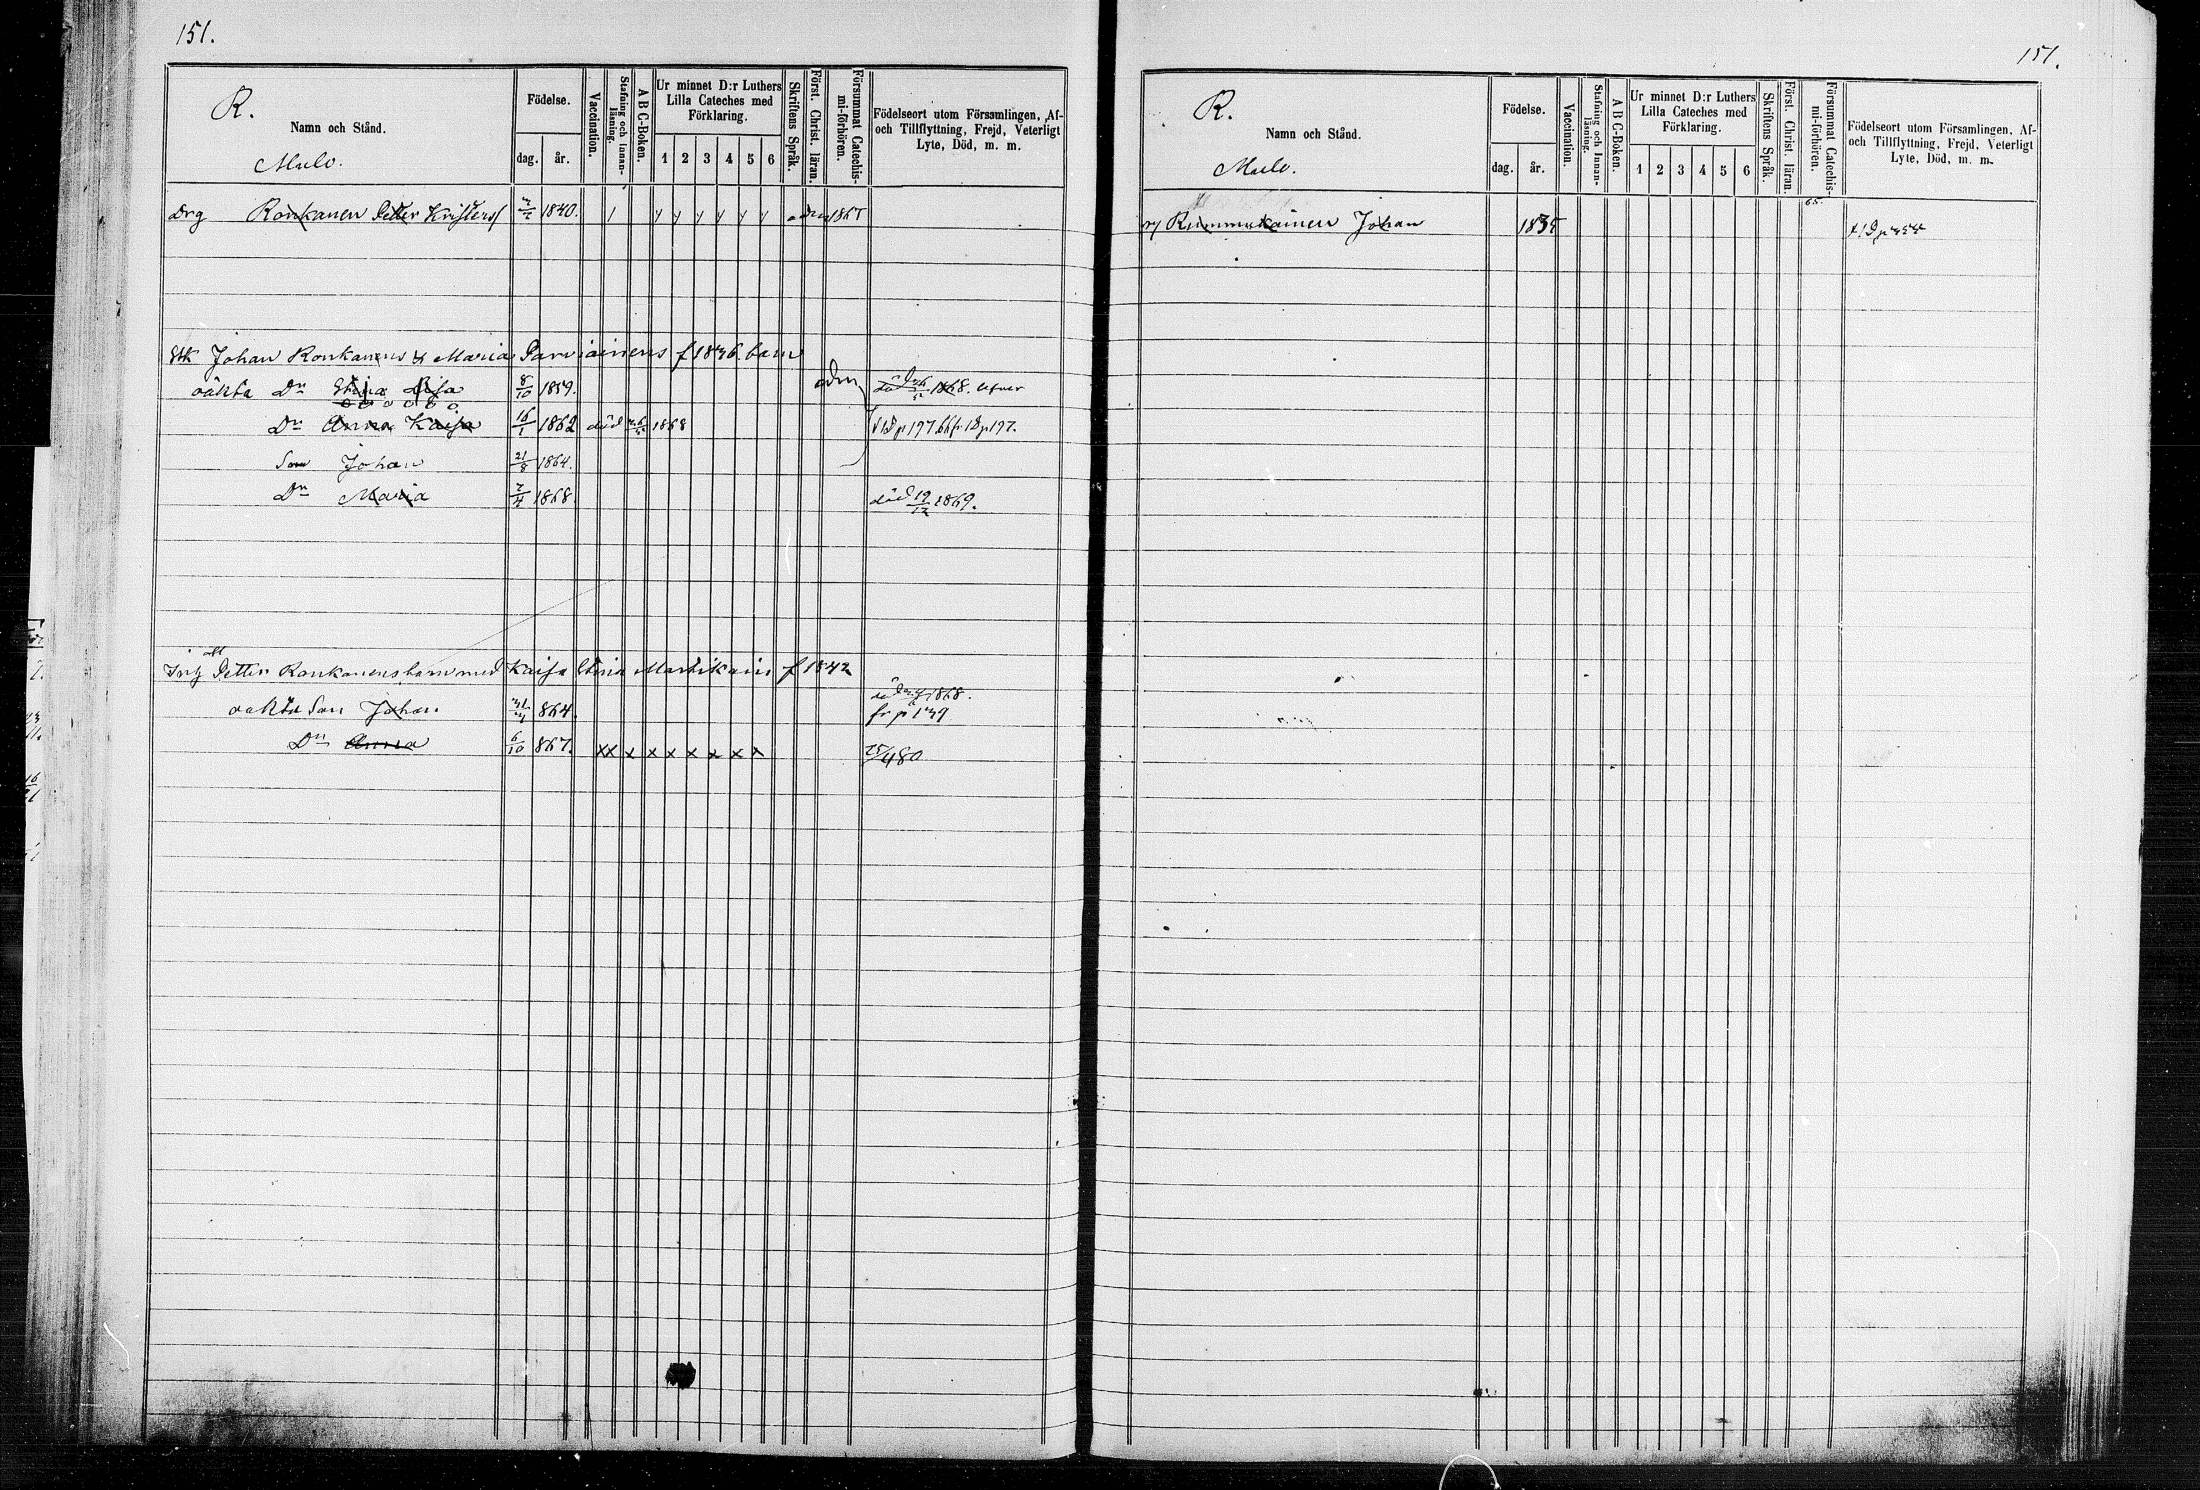 151.
R.
Namn och Stånd.
Mulo.
Födelse.
dag. år.
Vaccination.
Stafning och Innan-läsning.
A B C-Boken.
Ur minnet D:r Luthers
Lilla Cateches med
Förklaring.
1 2 3 4 5 6
Skriftens Språk.
Först. Christ. läran.
Försummat Catechis-mi-förhören.
Födelseort utom Församlingen, Af-
och Tillflyttning, Frejd, Veterligt
Lyte, Död, m. m.
Drg Ronkanen Petter Kristers 1840. 1865
Johan Ronkanens & Maria Parviainens f 1836 barn
oäkta Dr Stina Lisa 8/10 1859. död 1868.
Dr Anna Kaisa 16/1 1862 död 1868 p 197
Son Johan 21/8 1864.
Dr Maria 7/4 1868. död 19/12 1869.
Petter Ronkanens barn med Kaisa Stina Martikain f 1842
oäkta Son Johan 864. död 1868.
fr p 139
Dr Anna 6/10 867. xx x x x x x x x 480
151.
R.
Namn och Stånd.
Mulo.
Födelse.
dag. år.
Vaccination.
Stafning och Innan-läsning.
A B C-Boken.
Ur minnet D:r Luthers
Lilla Cateches med
Förklaring.
1 2 3 4 5 6
Skriftens Språk.
Först. Christ. läran.
Försummat Catechis-mi-förhören.
Födelseort utom Församlingen, Af-
och Tillflyttning, Frejd, Veterligt
Lyte, Död, m. m.
65.
Rummukainen Johan 1835